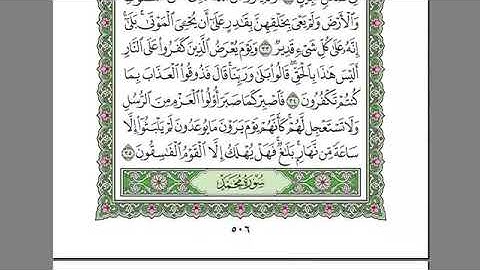 فِي ضَلَٰلٖ مُّبِينٍ
وَٱلۡأَرۡضَ وَلَمۡ يَعۡيَ بِخَلۡقِهِنَّ بِقَٰدِرٍ عَلَىٰٓ أَن يُحۡـِۧيَ ٱلۡمَوۡتَىٰۚ بَلَىٰٓ
إِنَّهُۥ عَلَىٰ كُلِّ شَيۡءٖ قَدِيرٞ ٣٣ وَيَوۡمَ يُعۡرَضُ ٱلَّذِينَ كَفَرُواْ عَلَى ٱلنَّارِ
أَلَيۡسَ هَٰذَا بِٱلۡحَقِّۖ قَالُواْ بَلَىٰ وَرَبِّنَاۚ قَالَ فَذُوقُواْ ٱلۡعَذَابَ بِمَا
كُنتُمۡ تَكۡفُرُونَ ٣٤ فَٱصۡبِرۡ كَمَا صَبَرَ أُوْلُواْ ٱلۡعَزۡمِ مِنَ ٱلرُّسُلِ
وَلَا تَسۡتَعۡجِل لَّهُمۡۚ كَأَنَّهُمۡ يَوۡمَ يَرَوۡنَ مَا يُوعَدُونَ لَمۡ يَلۡبَثُوٓاْ إِلَّا
سَاعَةٗ مِّن نَّهَارِۭۚ بَلَٰغٞۚ فَهَلۡ يُهۡلَكُ إِلَّا ٱلۡقَوۡمُ ٱلۡفَٰسِقُونَ ٣٥
سُورَةُ مُحَمَّدٍ
٥٠٦